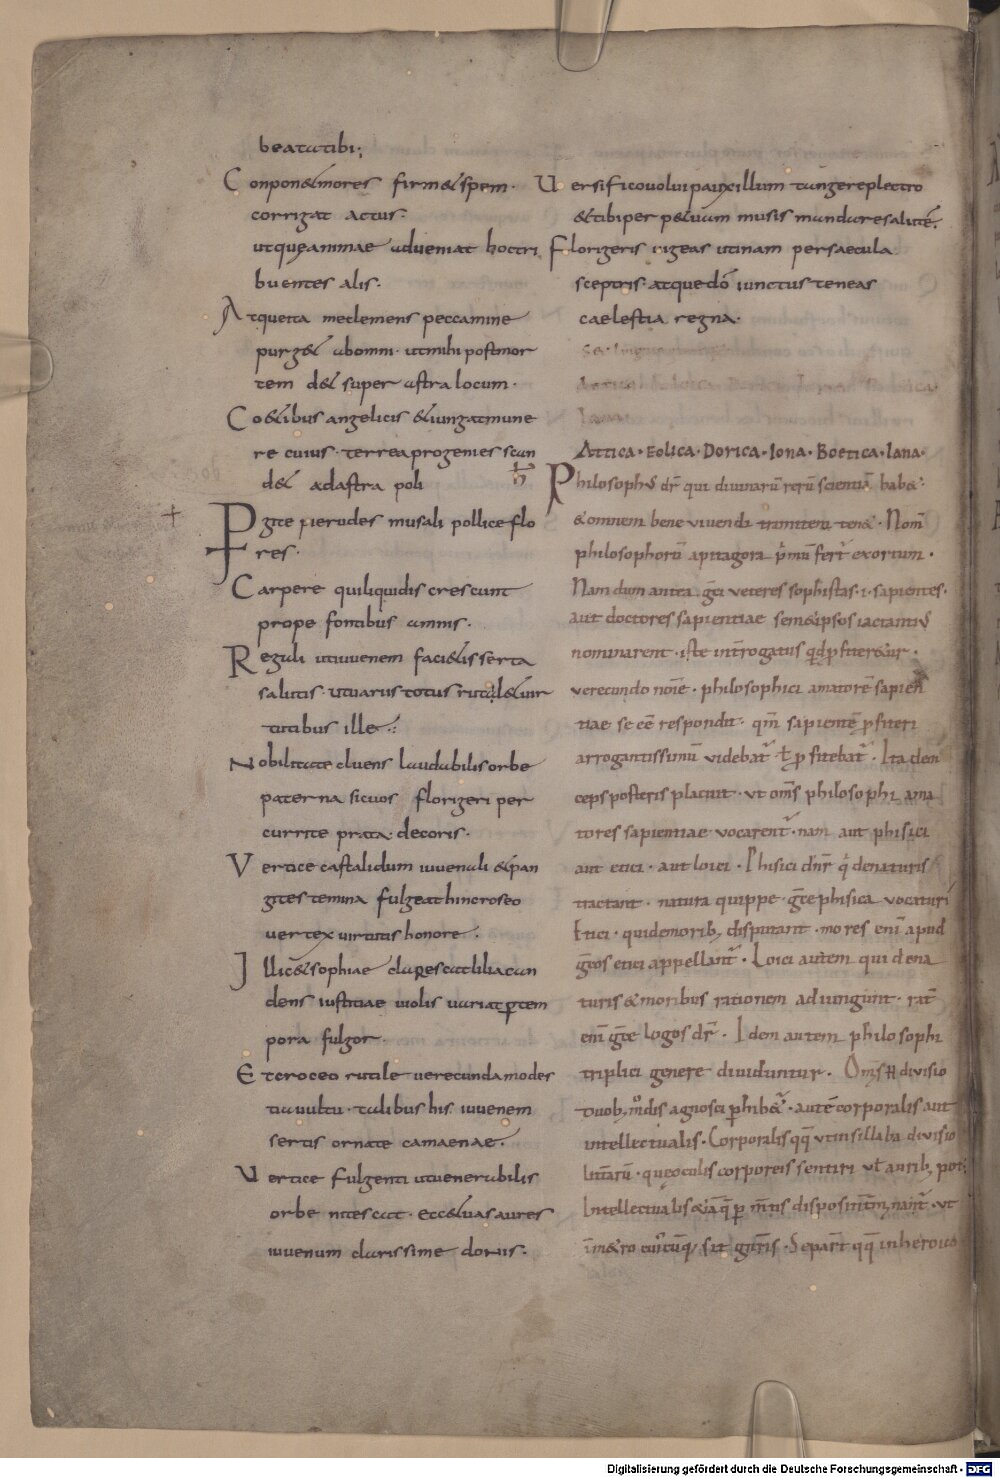 beatatibi;
Conpon&mores firm&spem·
corrigat actus·
utqueanimae adueniat hoctri
buentes alis·
Atqueita meclemens peccamine
purg& abomni· utmihi postmor
tem d& super astra locum·
Co&ibus angelicis &iungatmune
re cuius· terreaprogenies scan
d& adastra poli
Pgite pierides musali pollice flo
res·
Carpere quiliquidis crescunt
prope fontibus amnis·
Reguli utiuuenem faci&isserta
salutis· utuarustotus rutil&uir
tutibus ille·:
Nobilitate cluens laudabilisorbe
paterna sicuos florigeri per
currite prata· decoris·
Vertice castalidum iuuenali &pan
gites temina fulgeathincroseo
vertex uirtutis honore·
Illic&sophiae clarescatliliacan
dens iustitiae uiolis uariatptem
pora fulgor·
Etcroceo rutile uerecundamodes
tiauultu· talibus his iuuenem
sertis ornate camaenae·
Uertice fulgenti utuenerabilis
orbe nitescat· ecc&uasaures
iuuenum clarissime dorus·
Uersificouoluipauxillum tangereplectro
&tibiper p&uum musis mandaresalutē·
Florigeris uigeas utinam persaecula
sceptris· atquedō iunctus teneas
caelestia regna·
Attica· Eolica· Dorica· Iona· Boetica· Iana·
Philosophꝰ dr̄ qui diuinarū rerū scientiā hab&·
&omnem bene viuendi tramitem ten&· Nom̄
philosophorū apitagora p̄mū fert̄ exortum·
Nam dum antea gr̄ci veteres sophistas·i·sapientes·
aut doctores sapientiae sem&ipsos iactantiꝰ
nominarent· iste int̄rogatus qd pfiter&ur·
verecundo noīe· philosophicī amatorē sapien
tiae se eē respondit· qm̄ sapientē pfiteri
arrogantissimū videbat̄ t pfitebat̄· Ita dein
ceps posteris placuit· vt om̄s philosophi ama
tores sapientiae vocarent̄· nam aut phisici
aut etici· aut loici· Phisici dnr̄ q̄ denaturis
tractant· natura quippe gr̄ce phisica vocatur
Etici· quidemorib; disputant· mores enī apud
gr̄cos etici appellant̄· Loici autem qui dena
turis&moribus rationem adiungunt· rat̄
enī gr̄ce logos dr̄· Idem autem philosophi
triplici genere diuiduntur· Om̄s H diuisio
duob; modis agnosci phib&̄· autē corporalis aut
intellectualis· Corporalis qq̄ vtinsillaba diuisio
litt̄arū· queoculis corporeis sentiri vt̄ aurib; pot̄